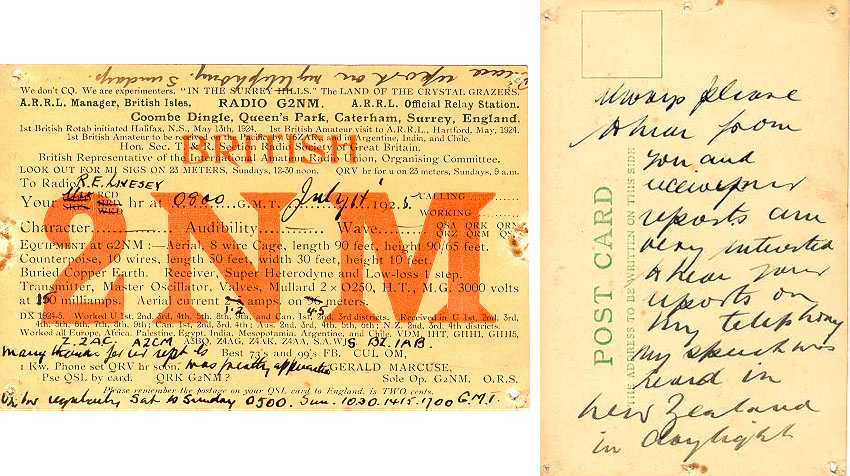 report on my telephony. Sundays.
We don't CQ. We are experimenters. "IN THE SURREY HILLS." The LAND OF THE CRYSTAL GRAZERS.
A.R.R.L. Manager, British Isles. RADIO G2NM. A.R.R.L. Official Relay Station.
Coombe Dingle, Queen's Park, Caterham, Surrey, England.
1st British Rotab initiated Halifax, N.S., May 13th, 1924. 1st British Amateur visit to A.R.R.L., Hartford, May, 1924.
1st British Amateur to be and in Argentine, India, and Chile.
Hon. Sec. Section Radio Society of Great Britain.
BRITISH
British Representative of the Amateur Radio Union, Organising Committee.
LOOK OUT FOR MI SIGS ON 23 METERS, Sundays, 12-30 noon. QRV hr for u on 23 meters, Sundays, 9 a.m.
To Radio R.E. LIVESEY
Your RCD hr at 0800 G.M.T. July 11 1925. CALLING
WORKING
2NM
Character Audibility Wave QSA QRK QRN
QRZ QRM
EQUIPMENT at G2NM :—Aerial, 8 wire Cage, length 90 feet, height 90/65 feet.
Counterpoise, 10 wires, length 50 feet, width 30 feet, height 10 feet.
Buried Copper Earth. Receiver, Super Heterodyne and Low-loss 1 step.
Transmitter, Master Oscillator, Valves, Mullard 2 × O250, H.T., M.G. 3000 volts
at 150 milliamps. Aerial current amps. on metres.
1.2 45
DX 1924-5. Worked U. 1st, 2nd, 3rd, 4th, 8th, 9th; Can. 1st, 2nd, 3rd districts. Received in U 1st, 2nd, 3rd,
4th, 5th, 6th, 7th, 8th, 9th; Can. 1st, 2nd, 3rd, 4th; Aus. 2nd, 3rd, 5th; N.Z. 2nd, 3rd, 4th districts.
Worked all Europe, Africa, Palestine, Egypt, India, Mesopotamia, Argentina and Chile, VDM, HT, GHH1, GHH5,
Z.2AC A2CM A3BQ, Z4AG, Z4AK, Z4AA, S.A.WJS BZ.1AB.
many thanks for ur rept Best 73's and 99's FB. CUL OM,
1 Kw. Phone set QRV hr soon. was greatly appreciated GERALD MARCUSE,
Pse QSL by card. QRK G2NM? Sole Op. G2NM. O.R.S.
Please remember the postage on your QSL card to England, is TWO cents.
On hr regularly Sat to Sunday 0500. Sun. 1030. 1415. 1700 G.M.T.
POST CARD
THE ADDRESS TO BE WRITTEN ON THIS SIDE
Always please
to hear from
you and
reports am
very interested
to hear your
reports on
my telephony
my speech was
heard in
New Zealand
in daylight